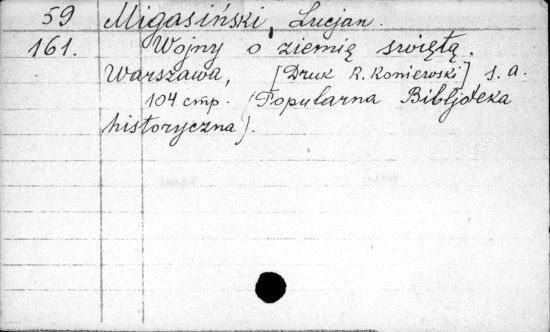 59 Migasiński, Lucjan.
161. Wojny o ziemię świętą.
Warszawa, [Druk R. Konierski] s. a.
104 стр. (Popularna Bibljoteka
historyczna).